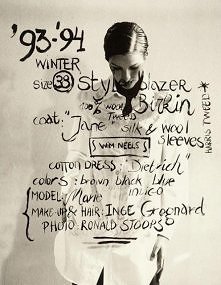 '93-'94
WINTER
size 38 style blazer
100% wool Birkin
coat: "Jane" TWEED silk & wool
sleeves
HARRIS TWEED *
WIM NEELS
COTTON DRESS: "Dietrich"
colors: brown black blue
INDIGO
MODEL: Marie
MAKE-UP & HAIR: INGE Grognard
PHOTO: RONALD STOOPS